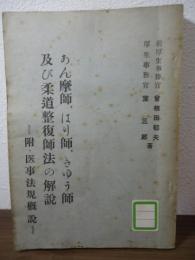 あん摩師、はり師、きゆう師
及び柔道整復師法の解説
―附・医事法規概説―
前厚生事務官 曾根田郁夫
厚生事務官 著